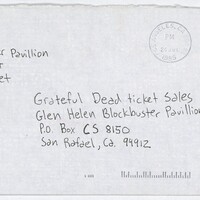 r Pavillion
r
et
Grateful Dead ticket Sales
Glen Helen Blockbuster Pavilion
P.O. Box CS 8150
San Rafael, Ca. 94912